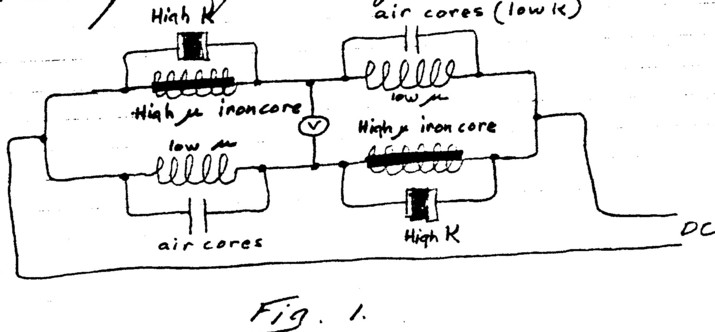 High K
air cores (low k)
High μ iron core
low μ
V
High μ iron core
low μ
air cores
High K
DC
Fig. 1.